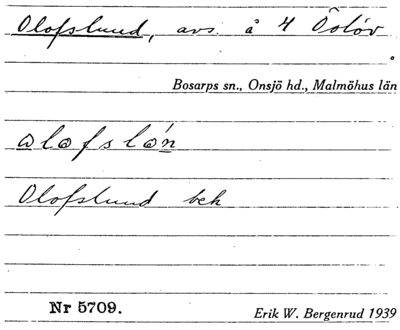 Olofslund, avs. å 4 Öslöv
Bosarps sn., Onsjö hd., Malmöhus län
olofslón
Olofslund bek
Nr 5709.
Erik W. Bergenrud 1939